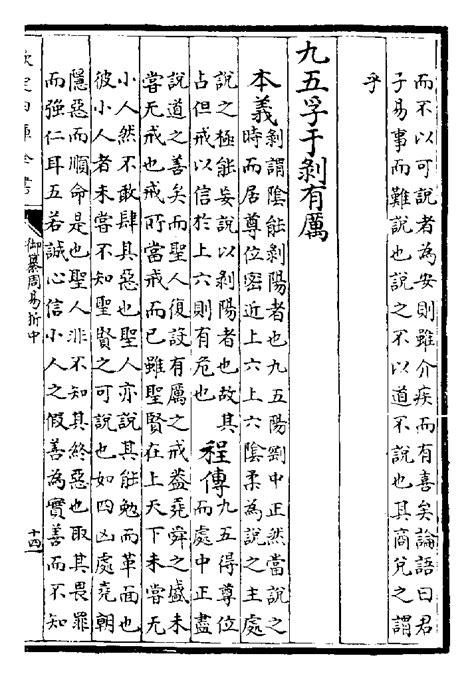 而不以可說者為安則雖介疾而有喜矣論語曰君
子易事而難說也說之不以道不說也其商兌之謂
乎
九五孚于剝有厲
本義剝謂陰能剝陽者也九五陽剛中正然當說之
時而居尊位密近上六上六陰柔為說之主處
說之極能妄說以剝陽者也故其
占但戒以信於上六則有危也
程傳九五得尊位
而處中正盡
說道之善矣而聖人復設有厲之戒葢堯舜之盛未
嘗无戒也戒所當戒而已雖聖賢在上天下未嘗无
小人然不敢肆其惡也聖人亦說其能勉而革面也
彼小人者未嘗不知聖賢之可說也如四凶處堯朝
隱惡而順命是也聖人非不知其終惡也取其畏罪
而強仁耳五若誠心信小人之假善為實善而不知
欽定四庫全書
御纂周易折中
十四